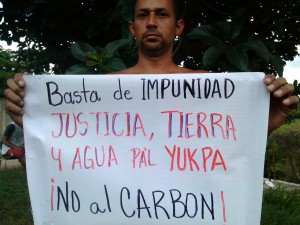 Basta de IMPUNIDAD
JUSTICIA, TIERRA
Y AGUA PA'L YUKPA
¡NO al CARBON!